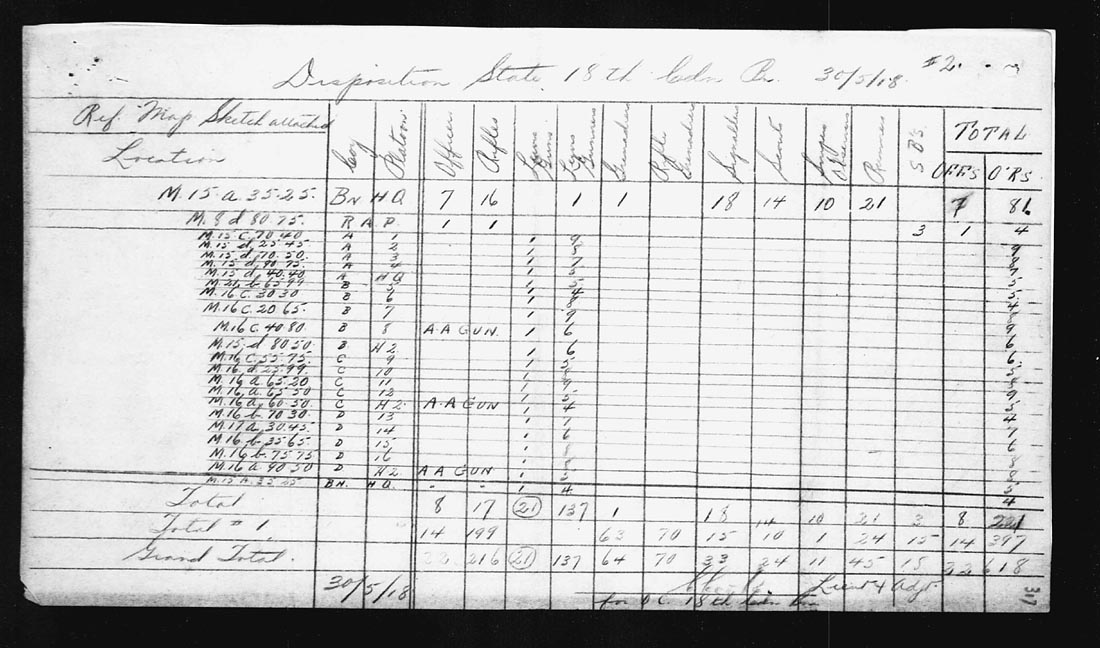 Disposition State 18th Cdn Bn. 30/5/18. #2.
Ref. Map Sketch attached
Location Coy Platoon Officer Rifles Lewis Guns Lewis Gunners Grenadiers Rifle Grenadiers Signallers Scouts Runners S.B's. TOTAL
OFFS O'RS
M.15.a.35.25. BN HQ 7 16 1 1 18 14 10 21 7 81
M.8.d.80.75. R A P. 1 1 3 1 4
M.15.c.70.40 A 1 1 9 9
M.15.d.25.45 A 2 1
M.15.d.70.50. A 3 1 7 7
M.15.d.90.75. A 1
M.15.d.40.40. A HQ 1 5 5
M.21.b.65.99 B 5 1
M.16.c.30.30 B 6 1
M.16.c.20.65. B 7 1 9 9
M.16.c.40.80. B 8 A.A GUN. 1 6 6
M.15.d.80.50 B H2 1 6 6
M.16.c.55.75. C 9 1
M.16.d.25.99. C 10 1
M.16.a.65.20 C 11 1 9 9
M.16.a.65.50 C 12 1 5 5
M.16.a.60.50 C H2. A.A GUN 1 4 4
M.16.b.70.30. D 13 1
M.17.a.30.45. D 14 1 6 6
M.16.b.35.65 D 15 1
M.16.b.75.75 D 16 1
M.16.a.90.50 D H2 A A GUN 1
M.15.A.35.25 BN. HQ. " " 1 4 4
Total 8 17 21 137 1 18 14 10 21 3 8 221
Total #1. 14 199 63 70 15 10 1 24 15 14 397
Grand Total. 22 216 21 137 64 70 33 24 11 45 18 22 618
30/5/18 Lieut & Adjt
for O.C. 18th Cdn Bn
317